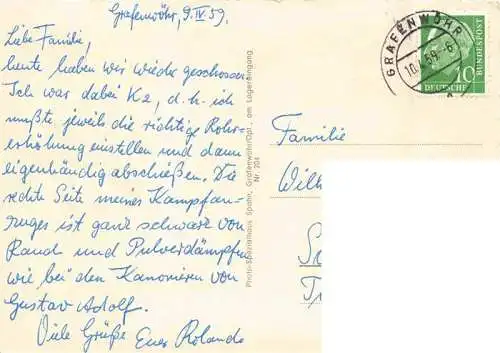 Grafenwöhr, 9.IV.59.
Liebe Familie,
heute haben wir wieder geschossen
Ich war dabei K2, d.h. ich
mußte jeweils die richtige Rohrer-
erhöhung einstellen und dann
eigenhändig abschießen. Die
rechte Seite meines Kampfan-
zuges ist ganz schwarz von
Rauch und Pulverdämpfen
wie bei den Kanonieren von
Gustav Adolf.
Viele Grüße Euer Roland
Photo-Spezialhaus Spahn, Grafenwöhr/Opf., am Lagereingang.
Nr. 204
GRAFENWÖHR
DEUTSCHE
BUNDESPOST
10
Familie
Wilh